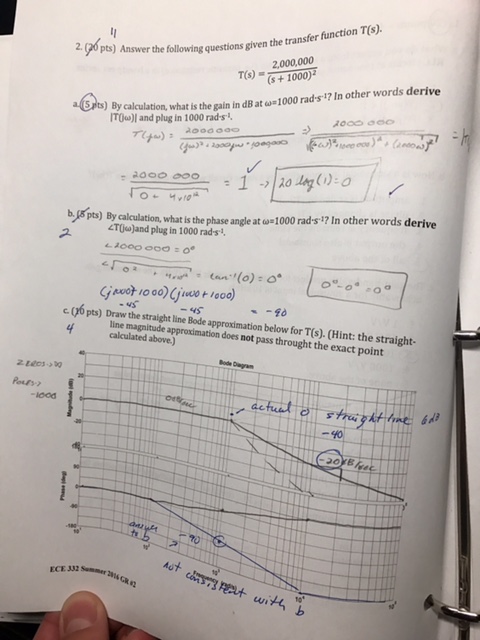 11
2. (20 pts) Answer the following questions given the transfer function T(s).
T(s) = 2,000,000 / (s + 1000)²
a. (5 pts) By calculation, what is the gain in dB at ω=1000 rad·s⁻¹? In other words derive
|T(jω)| and plug in 1000 rad·s⁻¹.
T(jω) = 2000000 / (jω)² + 2000jω + 1000000 => 2000 000
= 2000 000 / √(0 + 4x10¹²) = 1 → 20 log(1) = 0
b. (5 pts) By calculation, what is the phase angle at ω=1000 rad·s⁻¹? In other words derive
2
∠T(jω)and plug in 1000 rad·s⁻¹.
∠2000 000 = 0°
= tan⁻¹(0) = 0°
0° - 0° = 0°
(j1000+1000)(j1000+1000)
-45 -45 = -90
c. (10 pts) Draw the straight line Bode approximation below for T(s). (Hint: the straight-
4
line magnitude approximation does not pass throught the exact point
calculated above.)
ZEROS→∞
Poles→
-1000
Bode Diagram
Magnitude (dB)
40
20
0
-20
actual 0 straight line 6dB
-40
-20dB/dec
Phase (deg)
0
-90
-180
answer
to b
-90
not consistent with b
Frequency (rad/s)
ECE 332 Summer 2016 GR #2